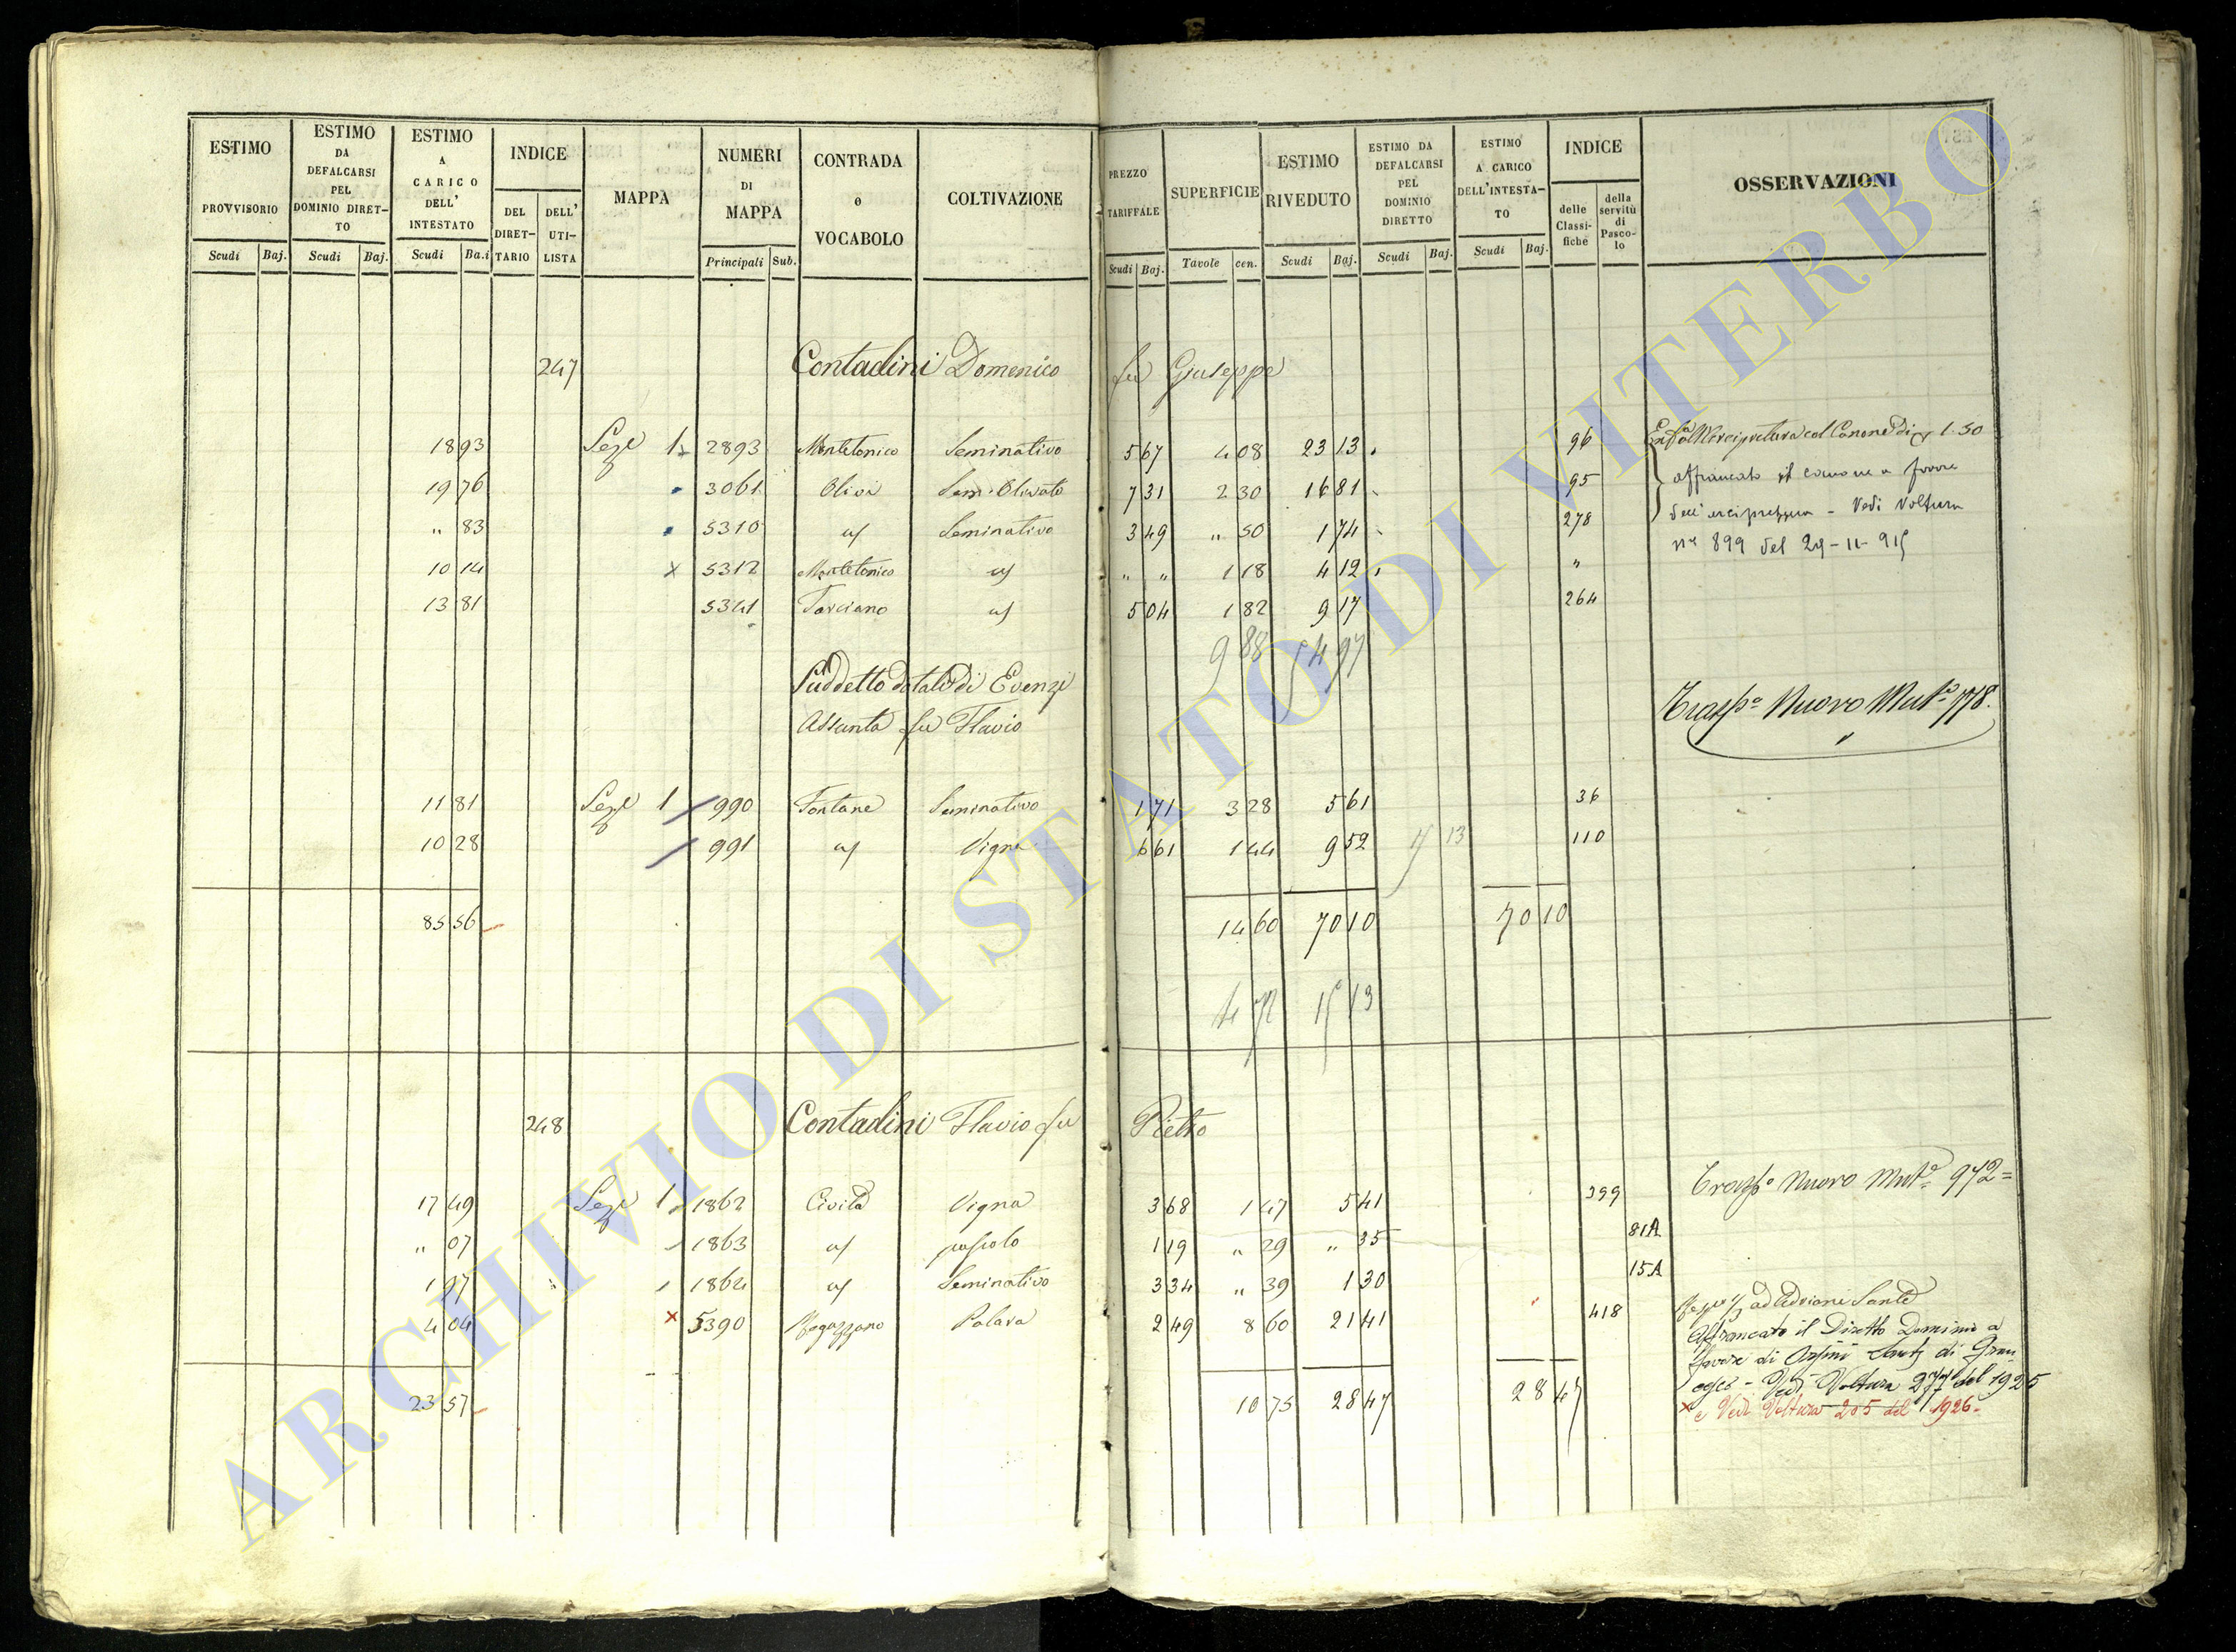 ESTIMO PROVVISORIO
Scudi Baj.
ESTIMO DA DEFALCARSI PEL DOMINIO DIRET-TO
Scudi Baj.
ESTIMO A CARICO DELL' INTESTATO
Scudi Ba.i
INDICE
DEL DIRET-TARIO
DELL' UTI-LISTA
MAPPA
NUMERI DI MAPPA
Principali Sub.
CONTRADA o VOCABOLO
COLTIVAZIONE
PREZZO TARIFFALE
Scudi Baj.
SUPERFICIE
Tavole cen.
ESTIMO RIVEDUTO
Scudi Baj.
ESTIMO DA DEFALCARSI PEL DOMINIO DIRETTO
Scudi Baj.
ESTIMO A CARICO DELL'INTESTA-TO
Scudi Baj.
INDICE
delle Classi-fiche
della servitù di Pasco-lo
OSSERVAZIONI
247 Contadini Domenico fu Giuseppe
18 93 Sez.e 1 2893 Montetonico Seminativo 5 67 4 08 23 13 96 col Canone di 1.50
19 76 3061 Olivi Sem. Olivato 7 31 2 30 16 81 95 affrancato il canone a favore
" 83 5310 a/ Seminativo 3 49 " 50 1 74 278 dell'arcipretura - Vedi Voltura
10 14 x 5312 Montetonico a/ " " 1 18 4 12 " n° 899 del 29-11-915
13 81 5341 Torciano a/ 5 04 1 82 9 17 264
9 88 54 97
Suddetto dotali di Evenzi
Assunta fu Flavio
Trasp.o Nuovo Mut.e 778.
11 81 Sez.e 1 990 Fontane Seminativo 1 71 3 28 5 61 36
10 28 991 a/ Vigna 6 61 1 44 9 52 15 13 110
85 56 14 60 70 10 70 10
4 72 15 13
248 Contadini Flavio fu Pietro
Trasp.o Nuovo Mut.e 972=
17 49 Sez.e 1 1862 Civita Vigna 3 68 1 47 5 41 399
" 07 1863 a/ pascolo 1 19 " 29 " 35 81A
1 97 1864 a/ Seminativo 3 34 " 39 1 30 15A
4 04 x 5390 Palara 2 49 8 60 21 41 418 ad Adriani Sante
Affrancato il Diretto Dominio a
favore di Orsini
Vedi Voltura 277 del 1925
x e Vedi Voltura 205 del 1926.
23 57 10 75 28 47 28 47
ARCHIVIO DI STATO DI VITERBO